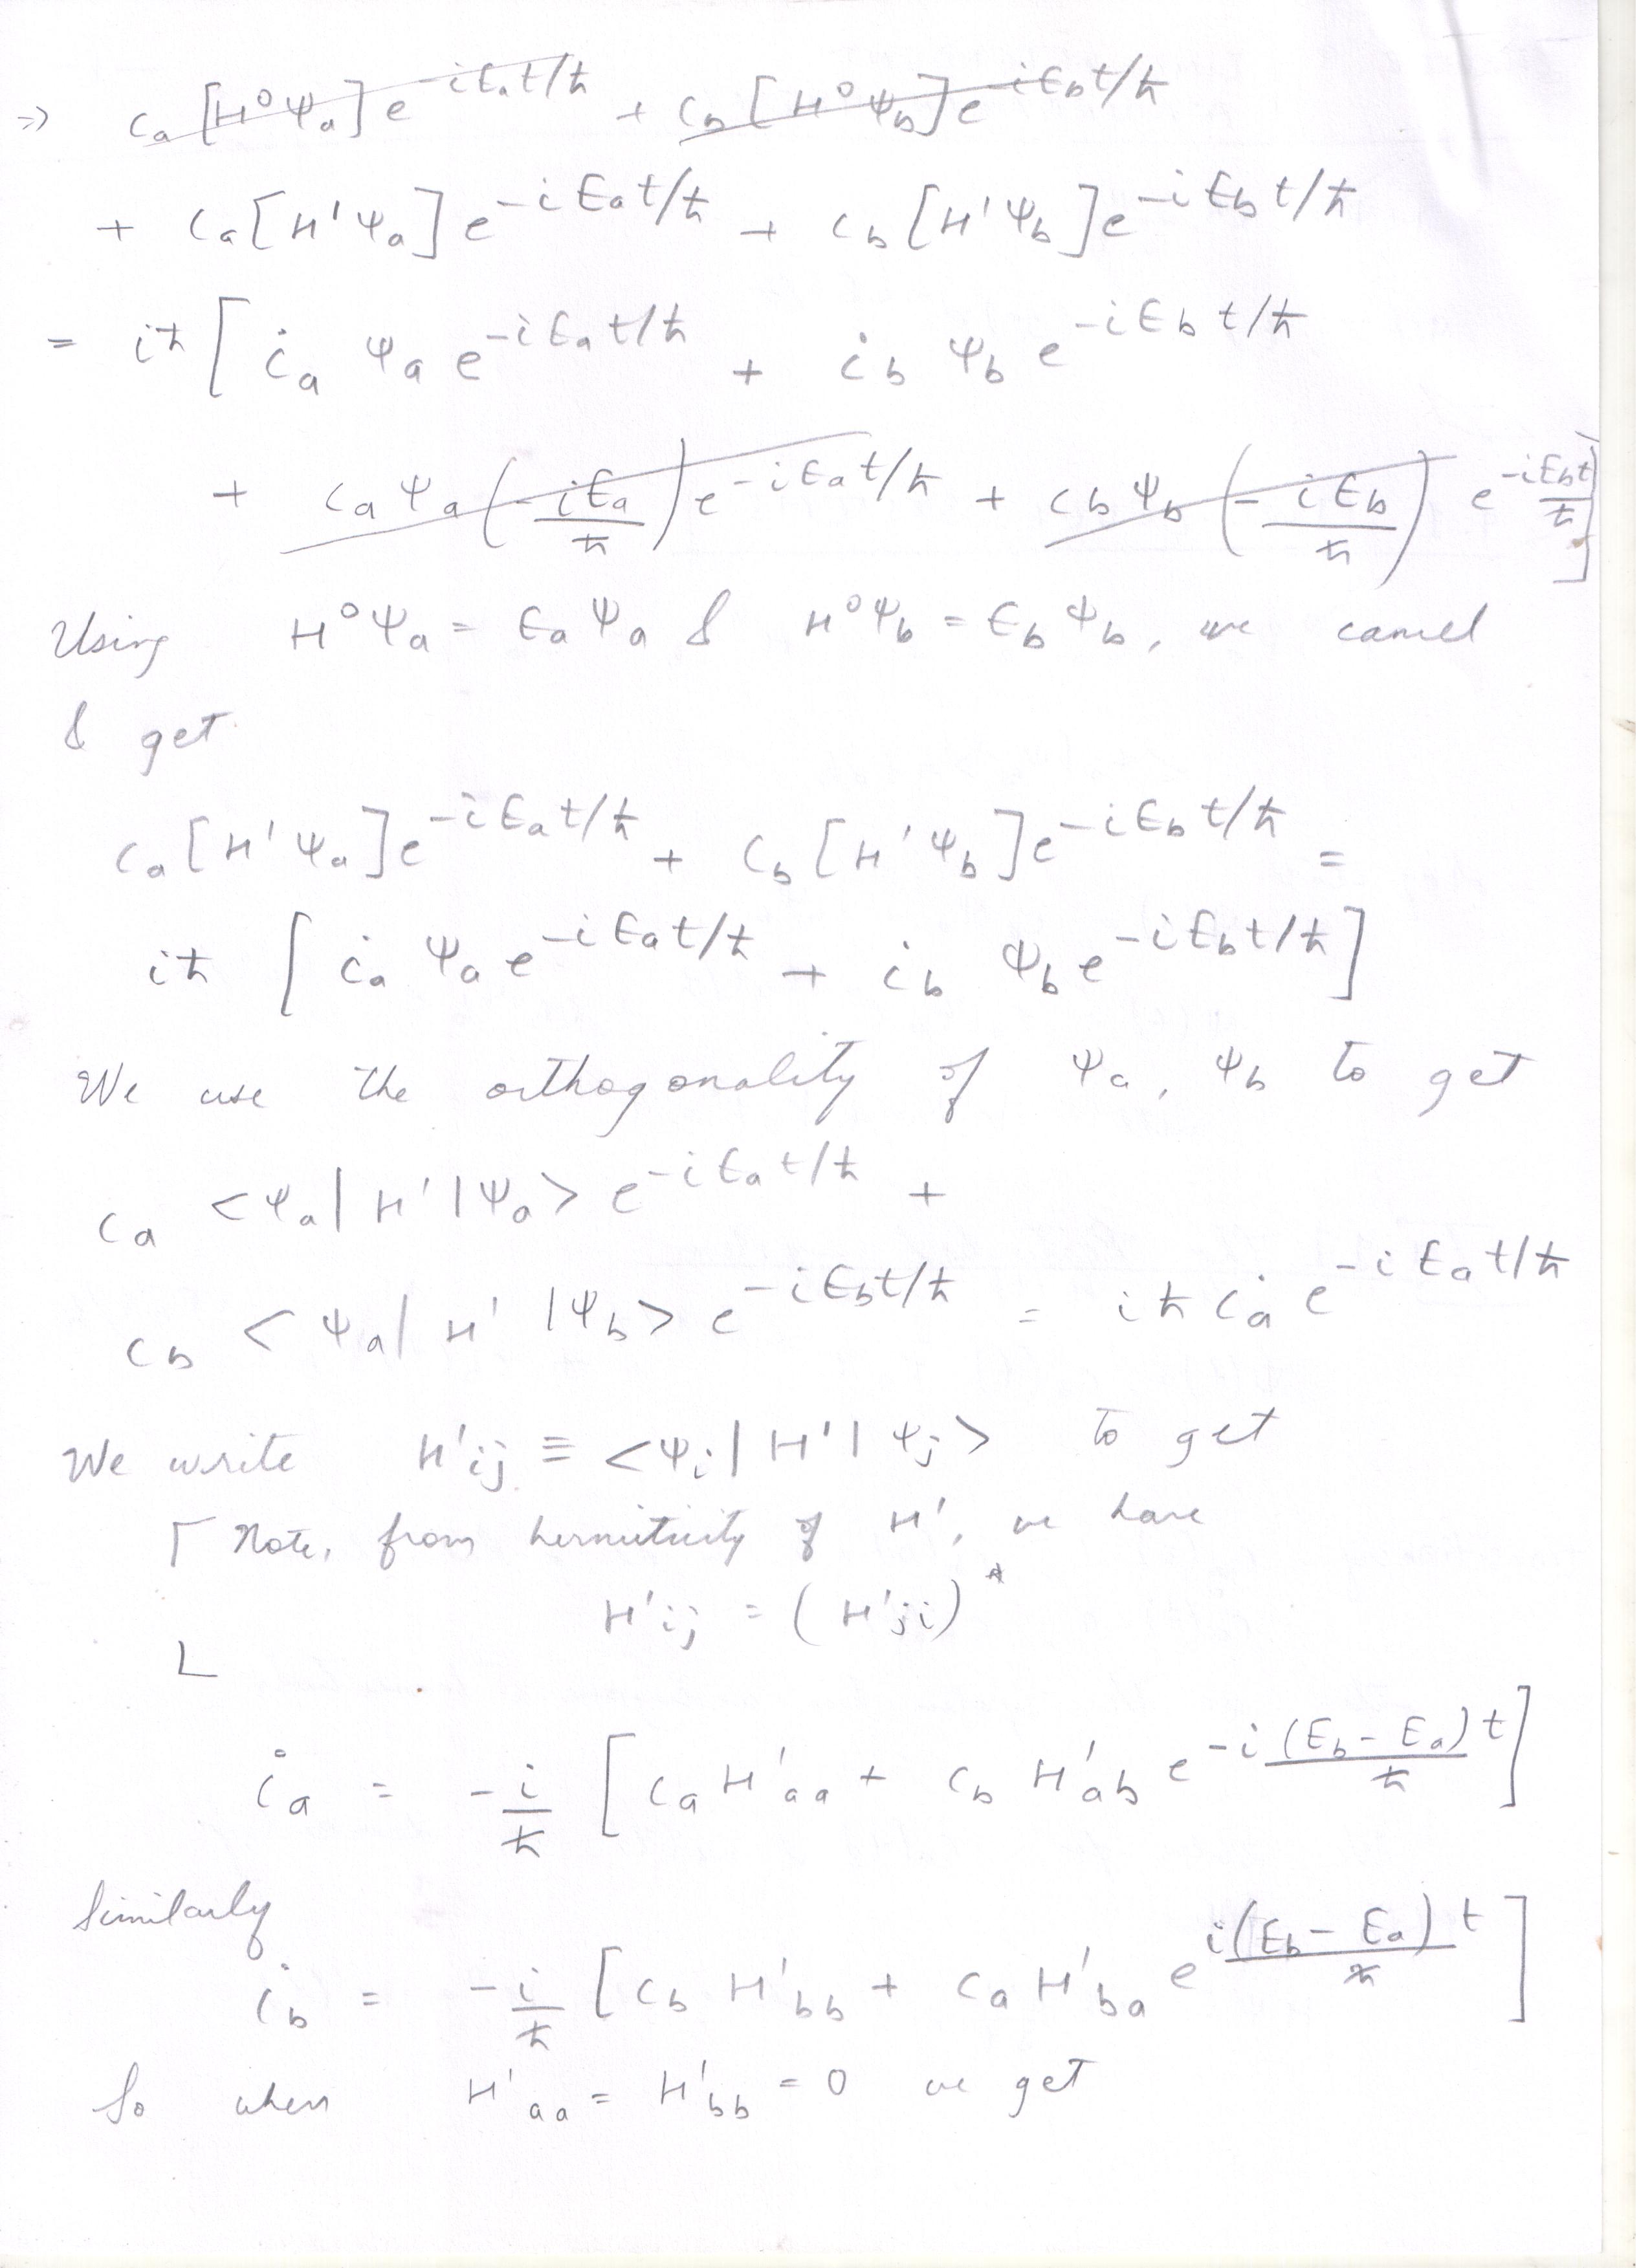 ⇒ c_a [H⁰ψ_a] e^{-iE_a t/ħ} + c_b [H⁰ψ_b] e^{-iE_b t/ħ}
+ c_a [H'ψ_a] e^{-iE_a t/ħ} + c_b [H'ψ_b] e^{-iE_b t/ħ}
= iħ [ ċ_a ψ_a e^{-iE_a t/ħ} + ċ_b ψ_b e^{-iE_b t/ħ}
+ c_a ψ_a (-iE_a/ħ) e^{-iE_a t/ħ} + c_b ψ_b (-iE_b/ħ) e^{-iE_b t/ħ} ]
Using H⁰ψ_a = E_a ψ_a & H⁰ψ_b = E_b ψ_b, we cancel
& get
c_a [H'ψ_a] e^{-iE_a t/ħ} + c_b [H'ψ_b] e^{-iE_b t/ħ} =
iħ [ ċ_a ψ_a e^{-iE_a t/ħ} + ċ_b ψ_b e^{-iE_b t/ħ} ]
We use the orthogonality of ψ_a, ψ_b to get
c_a <ψ_a| H' |ψ_a> e^{-iE_a t/ħ} +
c_b <ψ_a| H' |ψ_b> e^{-iE_b t/ħ} = iħ ċ_a e^{-iE_a t/ħ}
We write H'ij ≡ <ψ_i| H' | ψ_j> to get
⌈ Note, from hermiticity of H', we have
H'ij = (H'ji)*
⌊
ċ_a = -i/ħ [ c_a H'_aa + c_b H'_ab e^{-i (E_b - E_a) t/ħ} ]
Similarly
ċ_b = -i/ħ [ c_b H'_bb + c_a H'_ba e^{i (E_b - E_a) t/ħ} ]
So when H'_aa = H'_bb = 0 we get